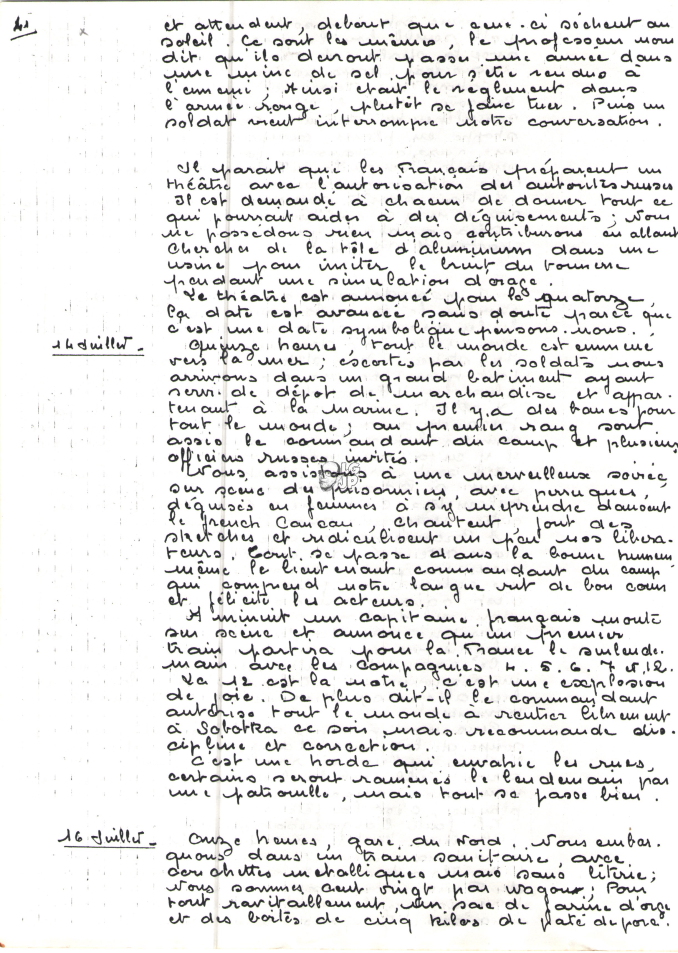 41
et attendent, debout que ceux-ci sèchent au
soleil. Ce sont les mêmes, le professeur nous
dit qu'ils devront passer une année dans
une mine de sel pour s'être rendus à
l'ennemi ; Ainsi était le règlement dans
l'armée rouge, plutôt se faire tuer. Puis un
soldat vient interrompre notre conversation.
Il parait que les Français préparent un
théâtre avec l'autorisation des autorités russes
Il est demandé à chacun de donner tout ce
qui pourrait aider à des déguisements ; Nous
ne possédons rien mais contribuons en allant
chercher de la tôle d'aluminium dans une
usine pour imiter le bruit du tonnerre
pendant une simulation d'orage.
Le théâtre est annoncé pour le quatorze,
la date est avancée sans doute parce que
c'est une date symbolique pensons-nous.
14 Juillet - Quinze heures, tout le monde est emmené
vers la mer ; escortés par les soldats nous
arrivons dans un grand batiment ayant
servi de dépot de marchandise et appar-
tenant à la marine. Il y a des bancs pour
tout le monde ; au premier rang sont
assis le commandant du camp et plusieurs
officiers russes invités.
Nous assistons à une merveilleux soirée,
sur scène des prisonniers, avec perruques,
déguisés en femmes à s'y méprendre dansent
le french Cancan, chantent, font des
sketches et ridiculisent un peu nos libéra-
teurs. Tout se passe dans la bonne humeur
même le lieutenant commandant du camp
qui comprend notre langue rit de bon cœur
et félicite les acteurs.
A minuit un capitaine français monte
sur scène et annonce qu'un premier
train partira pour la France le surlende-
main avec les compagnies 4. 5. 6. 7 et 12.
La 12 est la notre, c'est une explosion
de joie. De plus dit-il le commandant
autorise tout le monde à rentrer librement
à Sobotka ce soir mais recommande dis-
cipline et correction.
C'est une horde qui envahie les rues,
certains seront ramenés le lendemain par
une patrouille, mais tout se passe bien.
16 Juillet - Onze heures, gare du Nord. Nous embar-
quons dans un train sanitaire, avec
couchettes métalliques mais sans literie ;
Nous sommes cent vingt par wagons ; Pour
tout ravitaillement, un sac de farine d'orge
et des boîtes de cinq kilos de paté de porc.